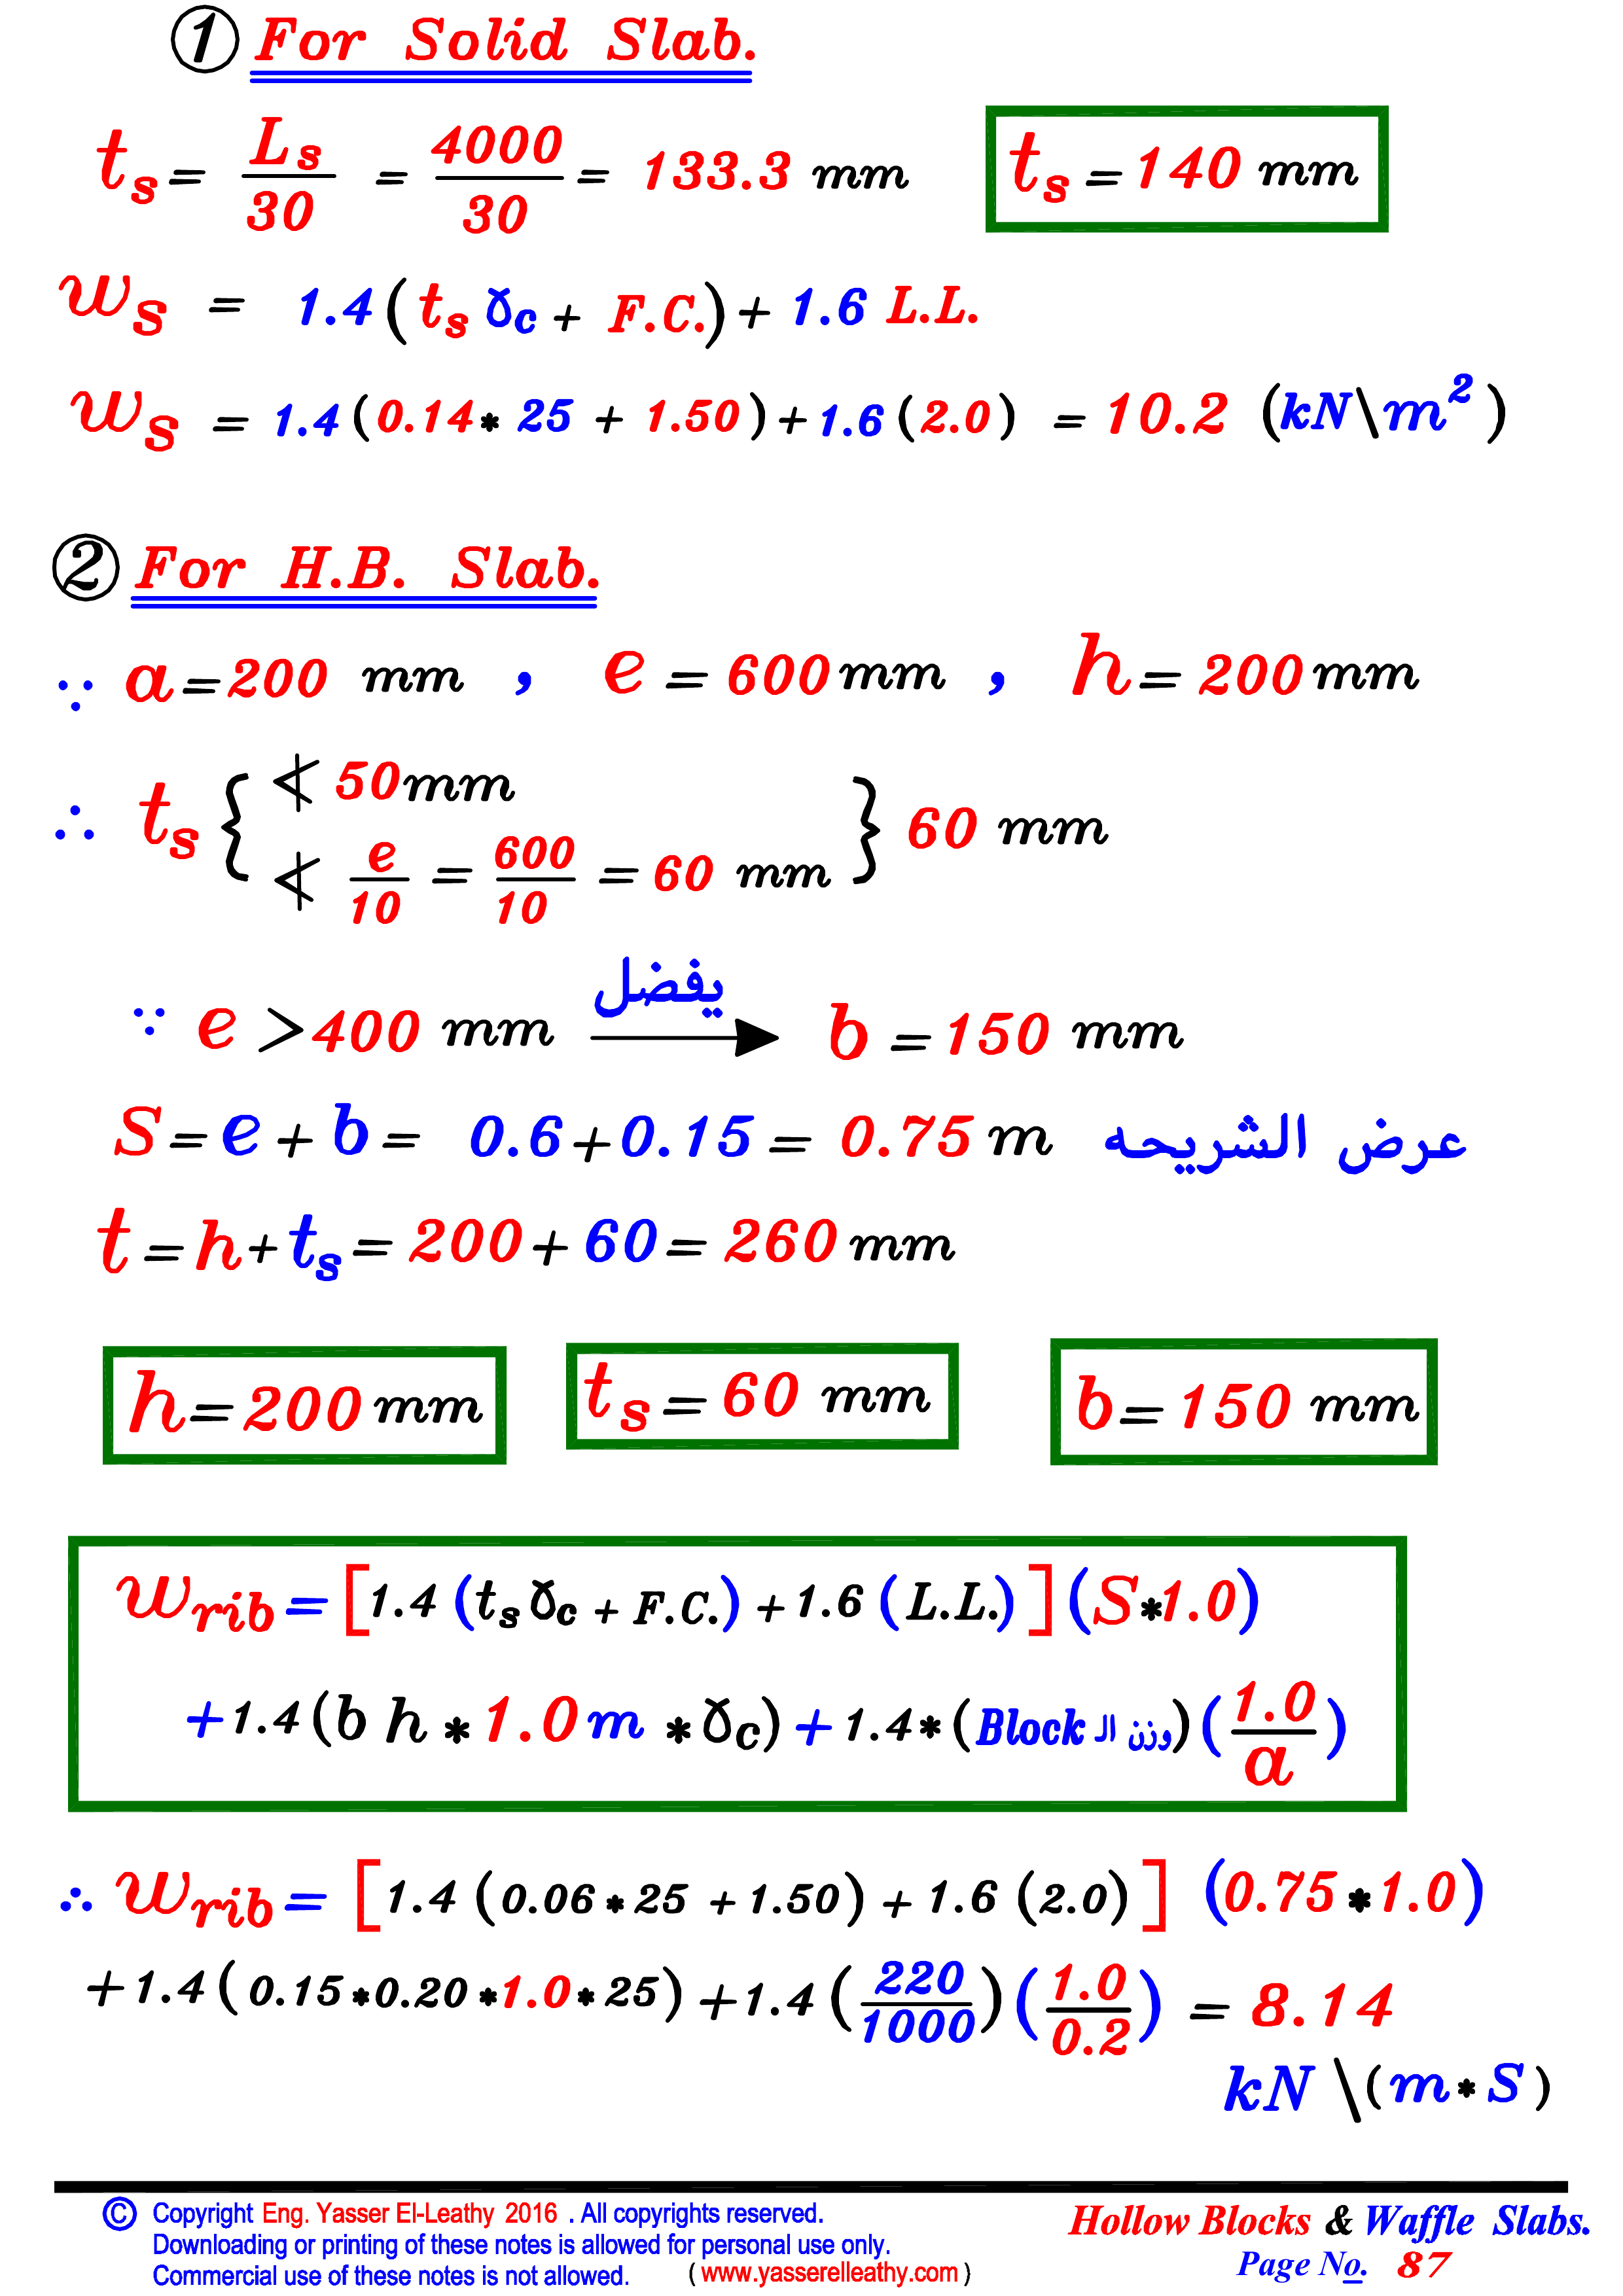 ① For Solid Slab.
tₛ = Lₛ/30 = 4000/30 = 133.3 mm   tₛ = 140 mm
wₛ = 1.4 ( tₛ γc + F.C. ) + 1.6 L.L.
wₛ = 1.4 ( 0.14 * 25 + 1.50 ) + 1.6 ( 2.0 ) = 10.2 ( kN\m² )
② For H.B. Slab.
∵ a = 200 mm , e = 600 mm , h = 200 mm
∴ tₛ { ≮ 50 mm
≮ e/10 = 600/10 = 60 mm } 60 mm
∵ e > 400 mm يفضل → b = 150 mm
S = e + b = 0.6 + 0.15 = 0.75 m عرض الشريحه
t = h + tₛ = 200 + 60 = 260 mm
h = 200 mm   tₛ = 60 mm   b = 150 mm
w rib = [ 1.4 ( tₛ γc + F.C. ) + 1.6 ( L.L. ) ] ( S * 1.0 )
+ 1.4 ( b h * 1.0 m * γc ) + 1.4 * ( وزن الـ Block ) ( 1.0/a )
∴ w rib = [ 1.4 ( 0.06 * 25 + 1.50 ) + 1.6 ( 2.0 ) ] ( 0.75 * 1.0 )
+ 1.4 ( 0.15 * 0.20 * 1.0 * 25 ) + 1.4 ( 220/1000 ) ( 1.0/0.2 ) = 8.14
kN \ ( m * S )
© Copyright Eng. Yasser El-Leathy 2016 . All copyrights reserved.
Downloading or printing of these notes is allowed for personal use only.
Commercial use of these notes is not allowed. ( www.yasserelleathy.com )
Hollow Blocks & Waffle Slabs.
Page No. 87